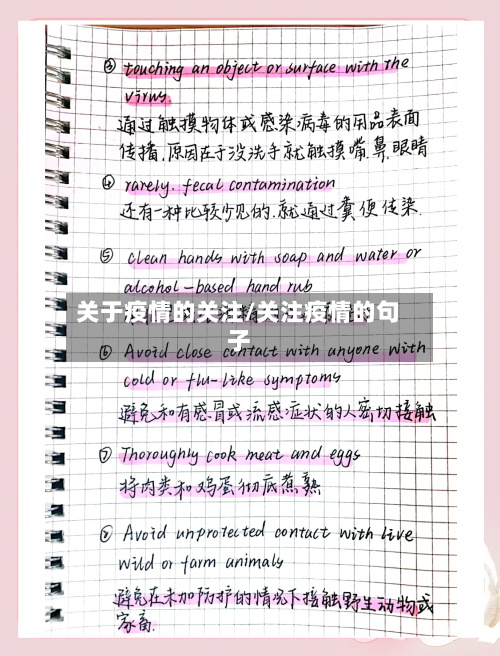 ③ touching an object or surface with the
virus.
通过触摸物体或感染病毒的用品表面
传播,原因在于没洗手就触摸嘴.鼻.眼睛
④ rarely. fecal contamination
还有一种比较少见的.就通过粪便传染.
⑤ clean hands with soap and water or
alcohol-based hand rub
关于疫情的关注/关注疫情的句
子
⑥ Avoid close contact with anyone with
cold or flu-like symptoms
避免和有感冒或流感症状的人密切接触
⑦ Thoroughly cook meat and eggs
将肉类和鸡蛋彻底煮熟
⑧ Avoid unprotected contact with live
wild or farm animals
避免在未加防护的情况下接触野生动物或
家畜.